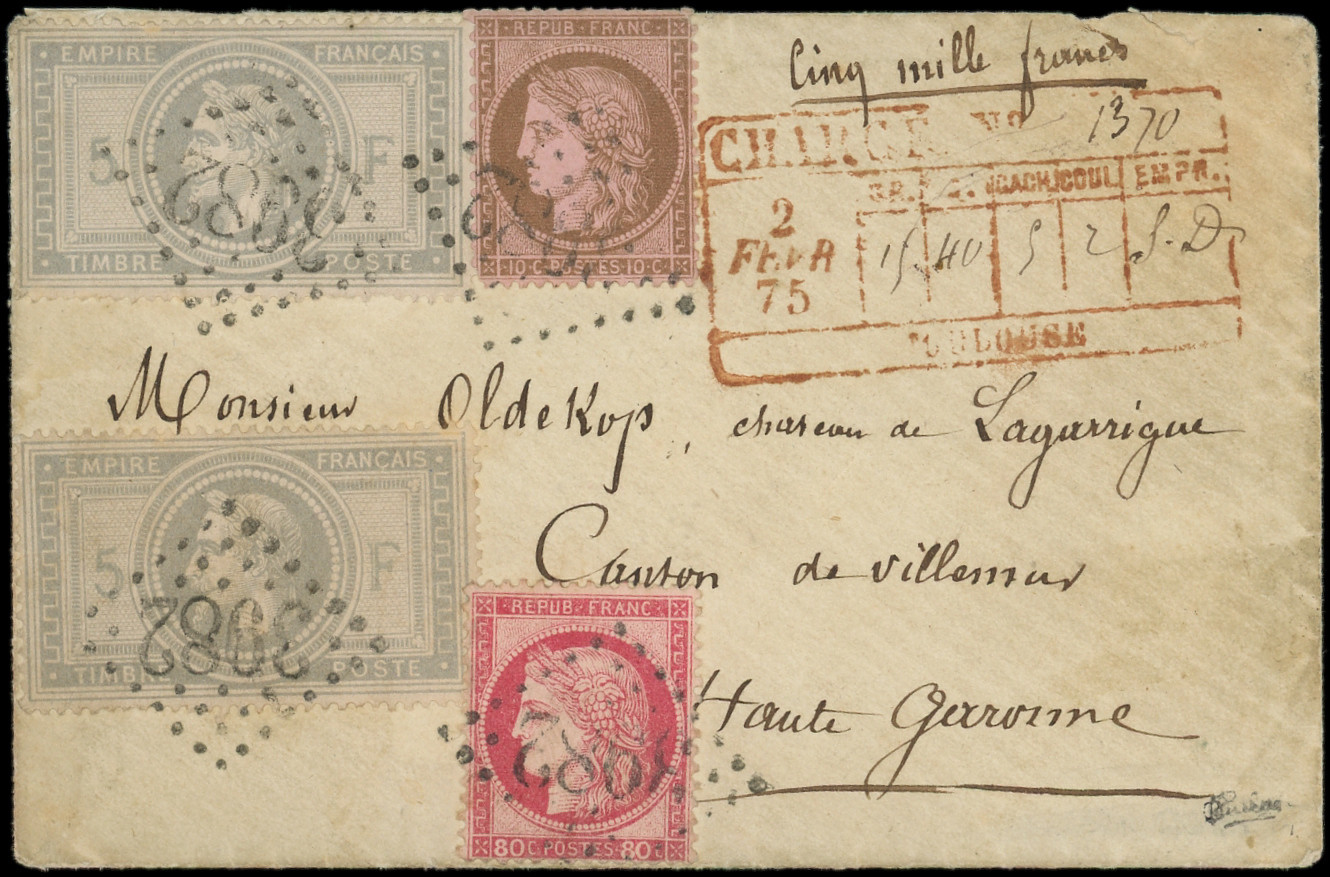 EMPIRE FRANÇAIS
5 F
TIMBRE POSTE
3982
REPUB. FRANC.
10 C. POSTES 10 C.
3982
Cinq mille francs
CHARGÉ No 1370
GR. CACH. COUL. EMPR.
2 FEVR 75
15 40 5 2 S.D
TOULOUSE
Monsieur Oldekop, chateau de Lagarrigue
EMPIRE FRANÇAIS
5 F
TIMBRE POSTE
3982
Canton de villemur
REPUB. FRANC.
80 C. POSTES 80 C.
3982
Haute Garonne